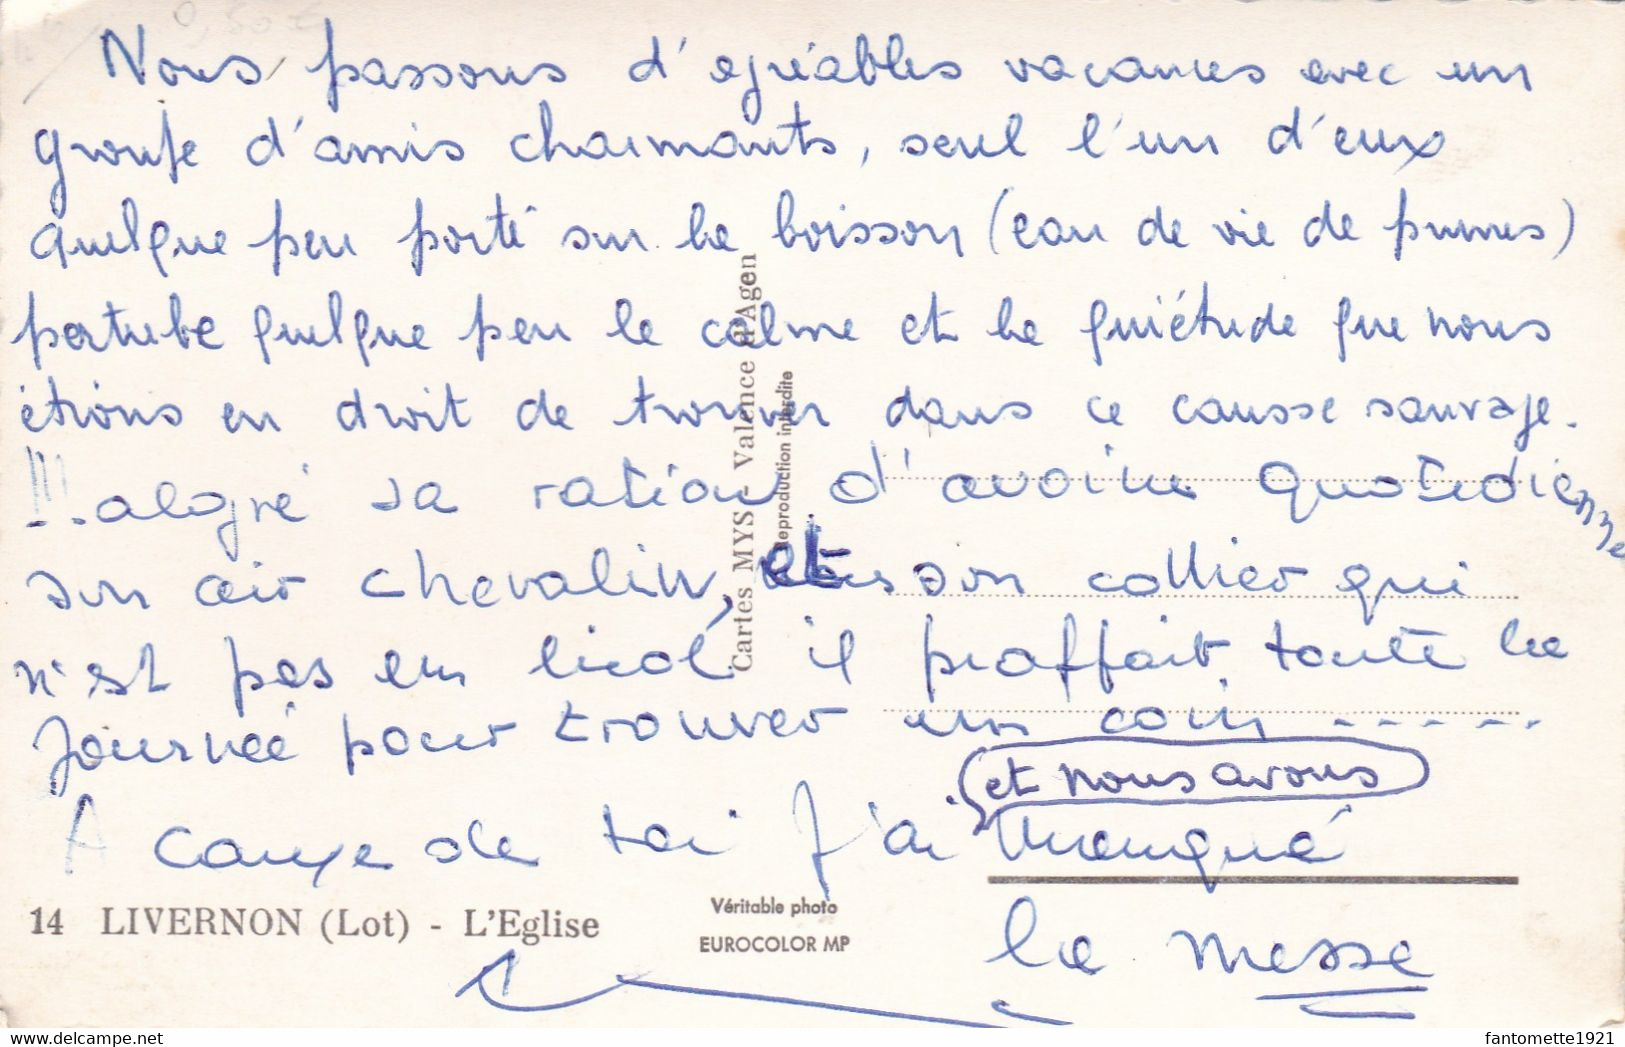 0,50 €
Nous passons d'agréables vacances avec un
groupe d'amis charmants, seul l'un d'eux
quelque peu porté sur la boisson (eau de vie de prunes)
pertube quelque peu le calme et la quiétude que nous
étions en droit de trouver dans ce causse sauvage.
!!!..algré sa ration d'avoine quotedienne
son air chevalin, et son collier qui
n'est pas en licol il piaffait toute la
journée pour trouver un coin -----
et nous avons
A cause de toi j'ai manqué
la messe
14 LIVERNON (Lot) - L'Eglise
Véritable photo
EUROCOLOR MP
Cartes MYS - Valence d'Agen
Reproduction interdite
fantomette1921
www.delcampe.net